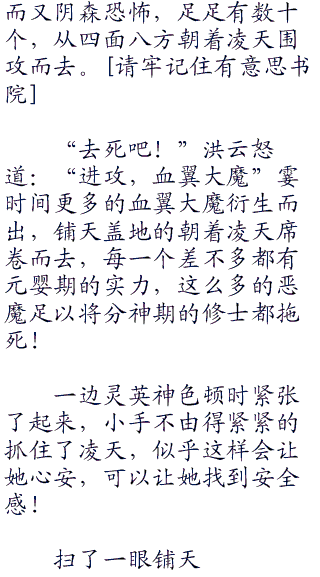 而又阴森恐怖，足足有数十
个，从四面八方朝着凌天围
攻而去。[请牢记住有意思书
院]
“去死吧！”洪云怒
道：“进攻，血翼大魔”霎
时间更多的血翼大魔衍生而
出，铺天盖地的朝着凌天席
卷而去，每一个差不多都有
元婴期的实力，这么多的恶
魔足以将分神期的修士都拖
死！
一边灵英神色顿时紧张
了起来，小手不由得紧紧的
抓住了凌天，似乎这样会让
她心安，可以让她找到安全
感！
扫了一眼铺天